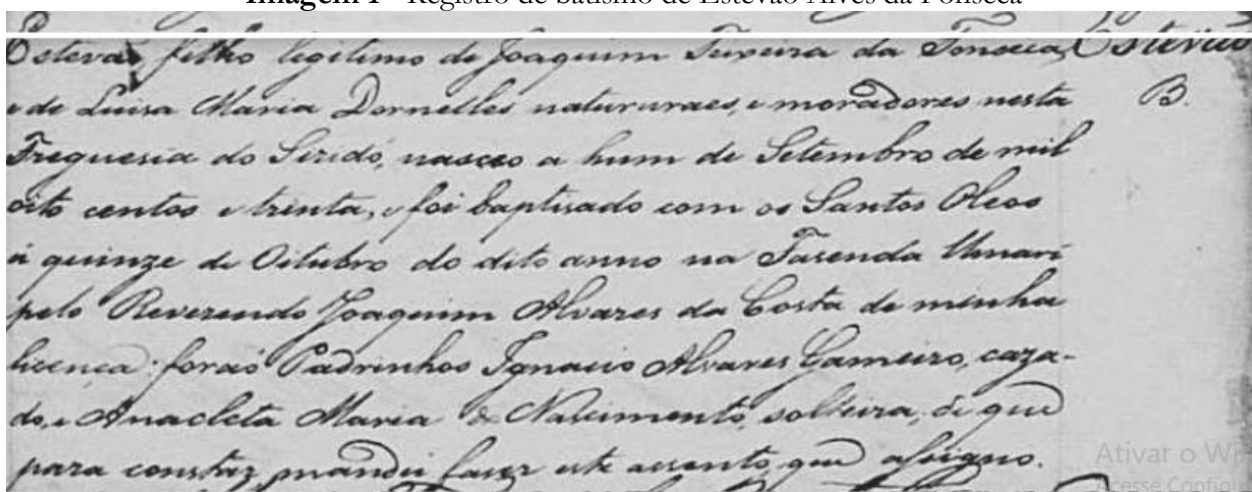 Imagem 1 - Registro de batismo de Estevão Alves da Fonseca
Estevaõ filho legitimo de Joaquim Teixeira da Fonseca Estevaõ
e de Luisa Maria Dornelles natururaes, e moradores nesta B.
Freguesia do Seridó, nasceo a hum de Setembro de mil
oito centos e trinta, e foi baptisado com os Santos Oleos
á quinze de Oitubro do dito anno na Fasenda Umari
pelo Reverendo Joaquim Alvares da Costa de minha
licença: foraõ Padrinhos Ignacio Alvares Gameiro, caza-
do, e Anacleta Maria do Nascimento, solteira, de que
para constar, mandei faser este assento, que assigno.
Ativar o Wi
Acesse Config